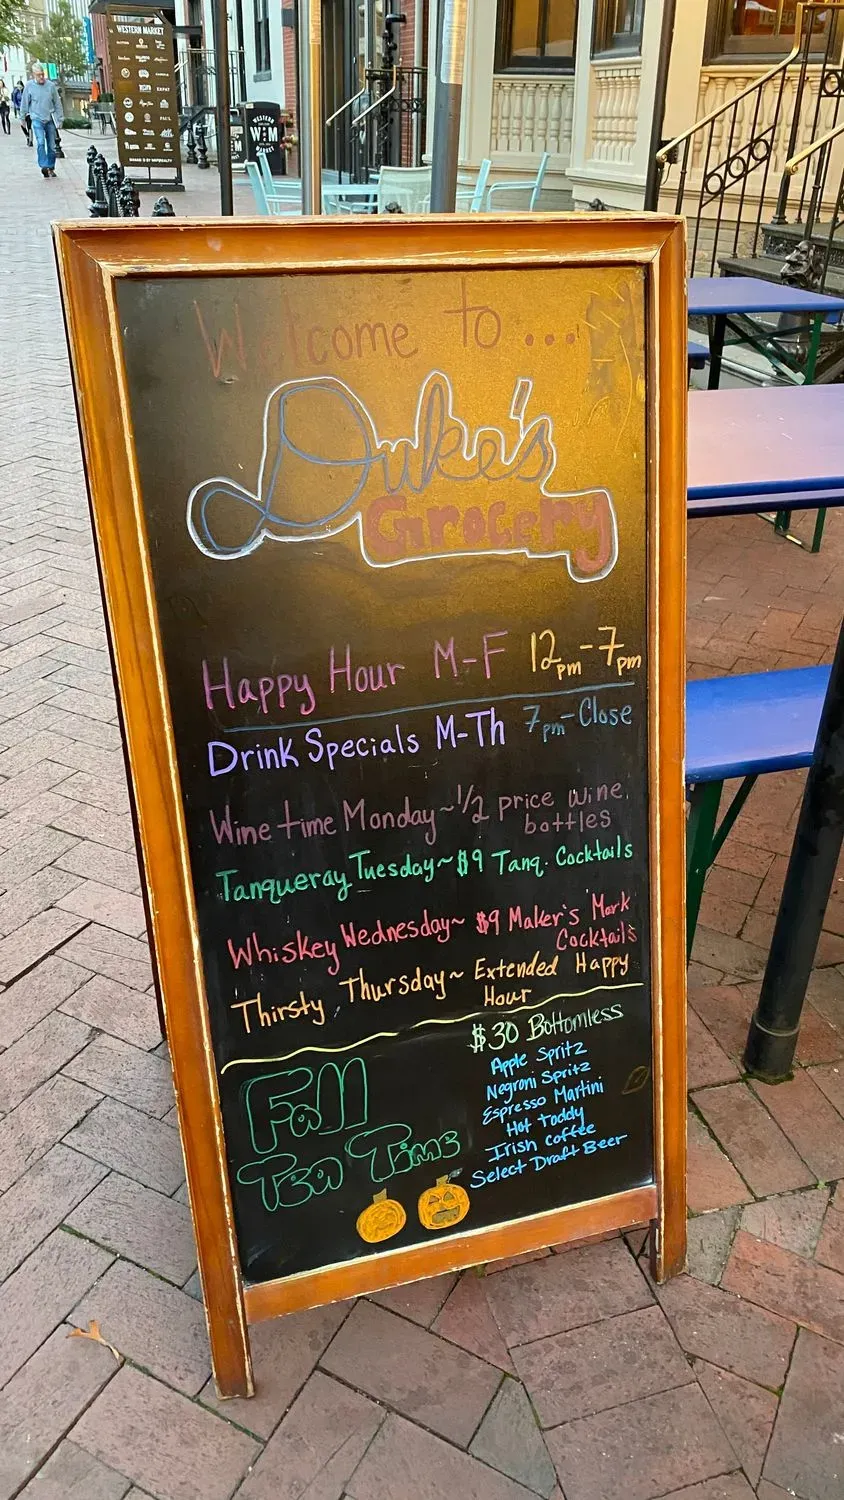 WESTERN MARKET
WESTERN
W M
MARKET
Welcome to ...
Duke's
Grocery
Happy Hour M-F 12pm-7pm
Drink Specials M-Th 7pm-Close
Wine time Monday~ 1/2 price wine
bottles
Tanqueray Tuesday~ $9 Tanq. Cocktails
Whiskey Wednesday~ $9 Maker's Mark
Cocktails
Thirsty Thursday~ Extended Happy
Hour
Fall
Tea Time
$30 Bottomless
Apple Spritz
Negroni Spritz
Espresso Martini
Hot Toddy
Irish coffee
Select Draft Beer